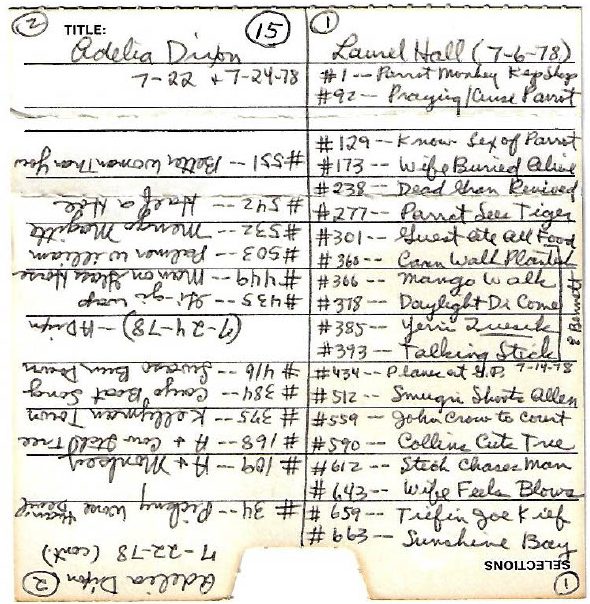 ② TITLE: ⑮
Adelia Dixon
7-22 + 7-24-78
①
Laurel Hall (7-6-78)
#1-- Parrot Monkey Kep Shop
#92-- Praying/Curse Parrot
#129-- Know Sex of Parrot
#173-- Wife Buried Alive
#238-- Dead Than Revived
#277-- Parrot Sees Tiger
#301-- Guest Ate All Food
#360-- Corn Walk
#366-- Mango Walk
#378-- Daylight Di Come
#385-- Yerri
#393-- Talking Stick
& Bennett
#434-- Planes at G.P. 7-14-78
#512-- Shorts Allen
#559-- John Crow to Court
#590-- Collins Cuts Tree
#612-- Stick Chases Man
#643-- Wife Feels Blows
#659-- Tiefin Joe Kief
#663-- Sunshine Bay
SELECTIONS
①
Adelia Dixon ②
7-22-78 (cont.)
#34-- Pickny Wone
#109-- A + Monkey
#168-- A + Cow Tree
#375-- Kellyman Town
#384-- Cayo Boat Song
#416-- Bun Down
(7-24-78)-- ADixon
#435-- Gi gi wap
#449-- Man on Glass Horse
#503-- Palmer William
#532-- Mango
#542-- Half a Hoe
#551-- Better Woman Than You